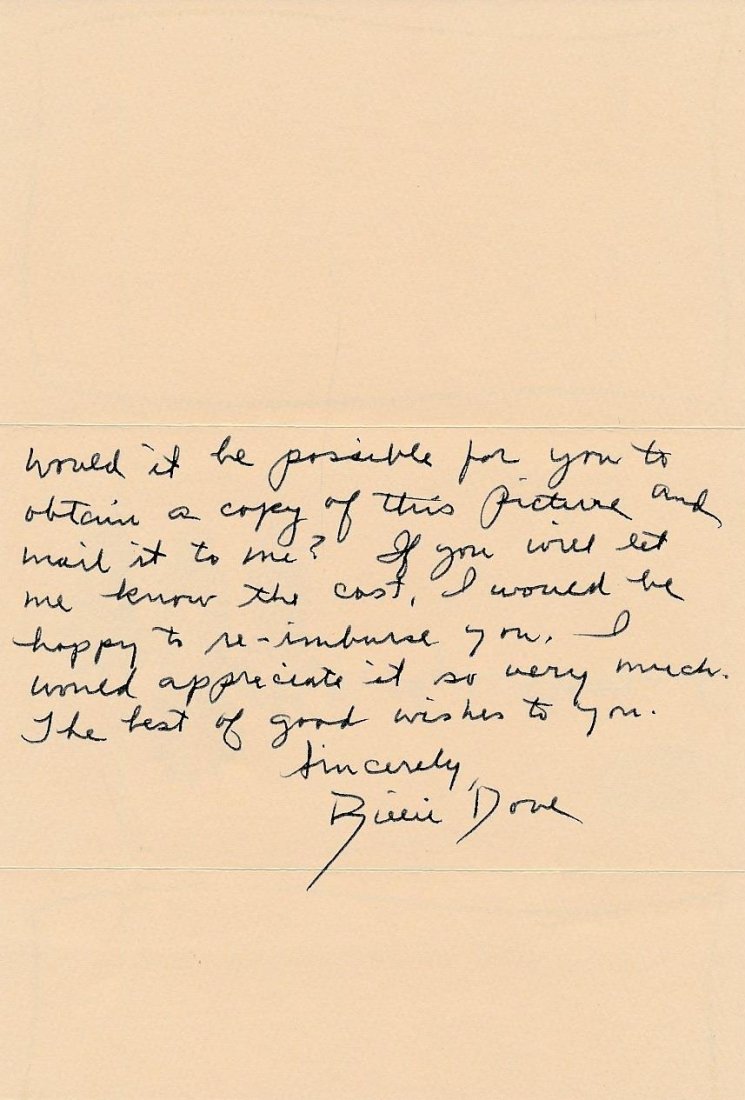 would it be possible for you to
obtain a copy of this picture and
mail it to me? If you will let
me know the cost, I would be
happy to re-imburse you. I
would appreciate it so very much.
The best of good wishes to you.
Sincerely,
Billie Dove